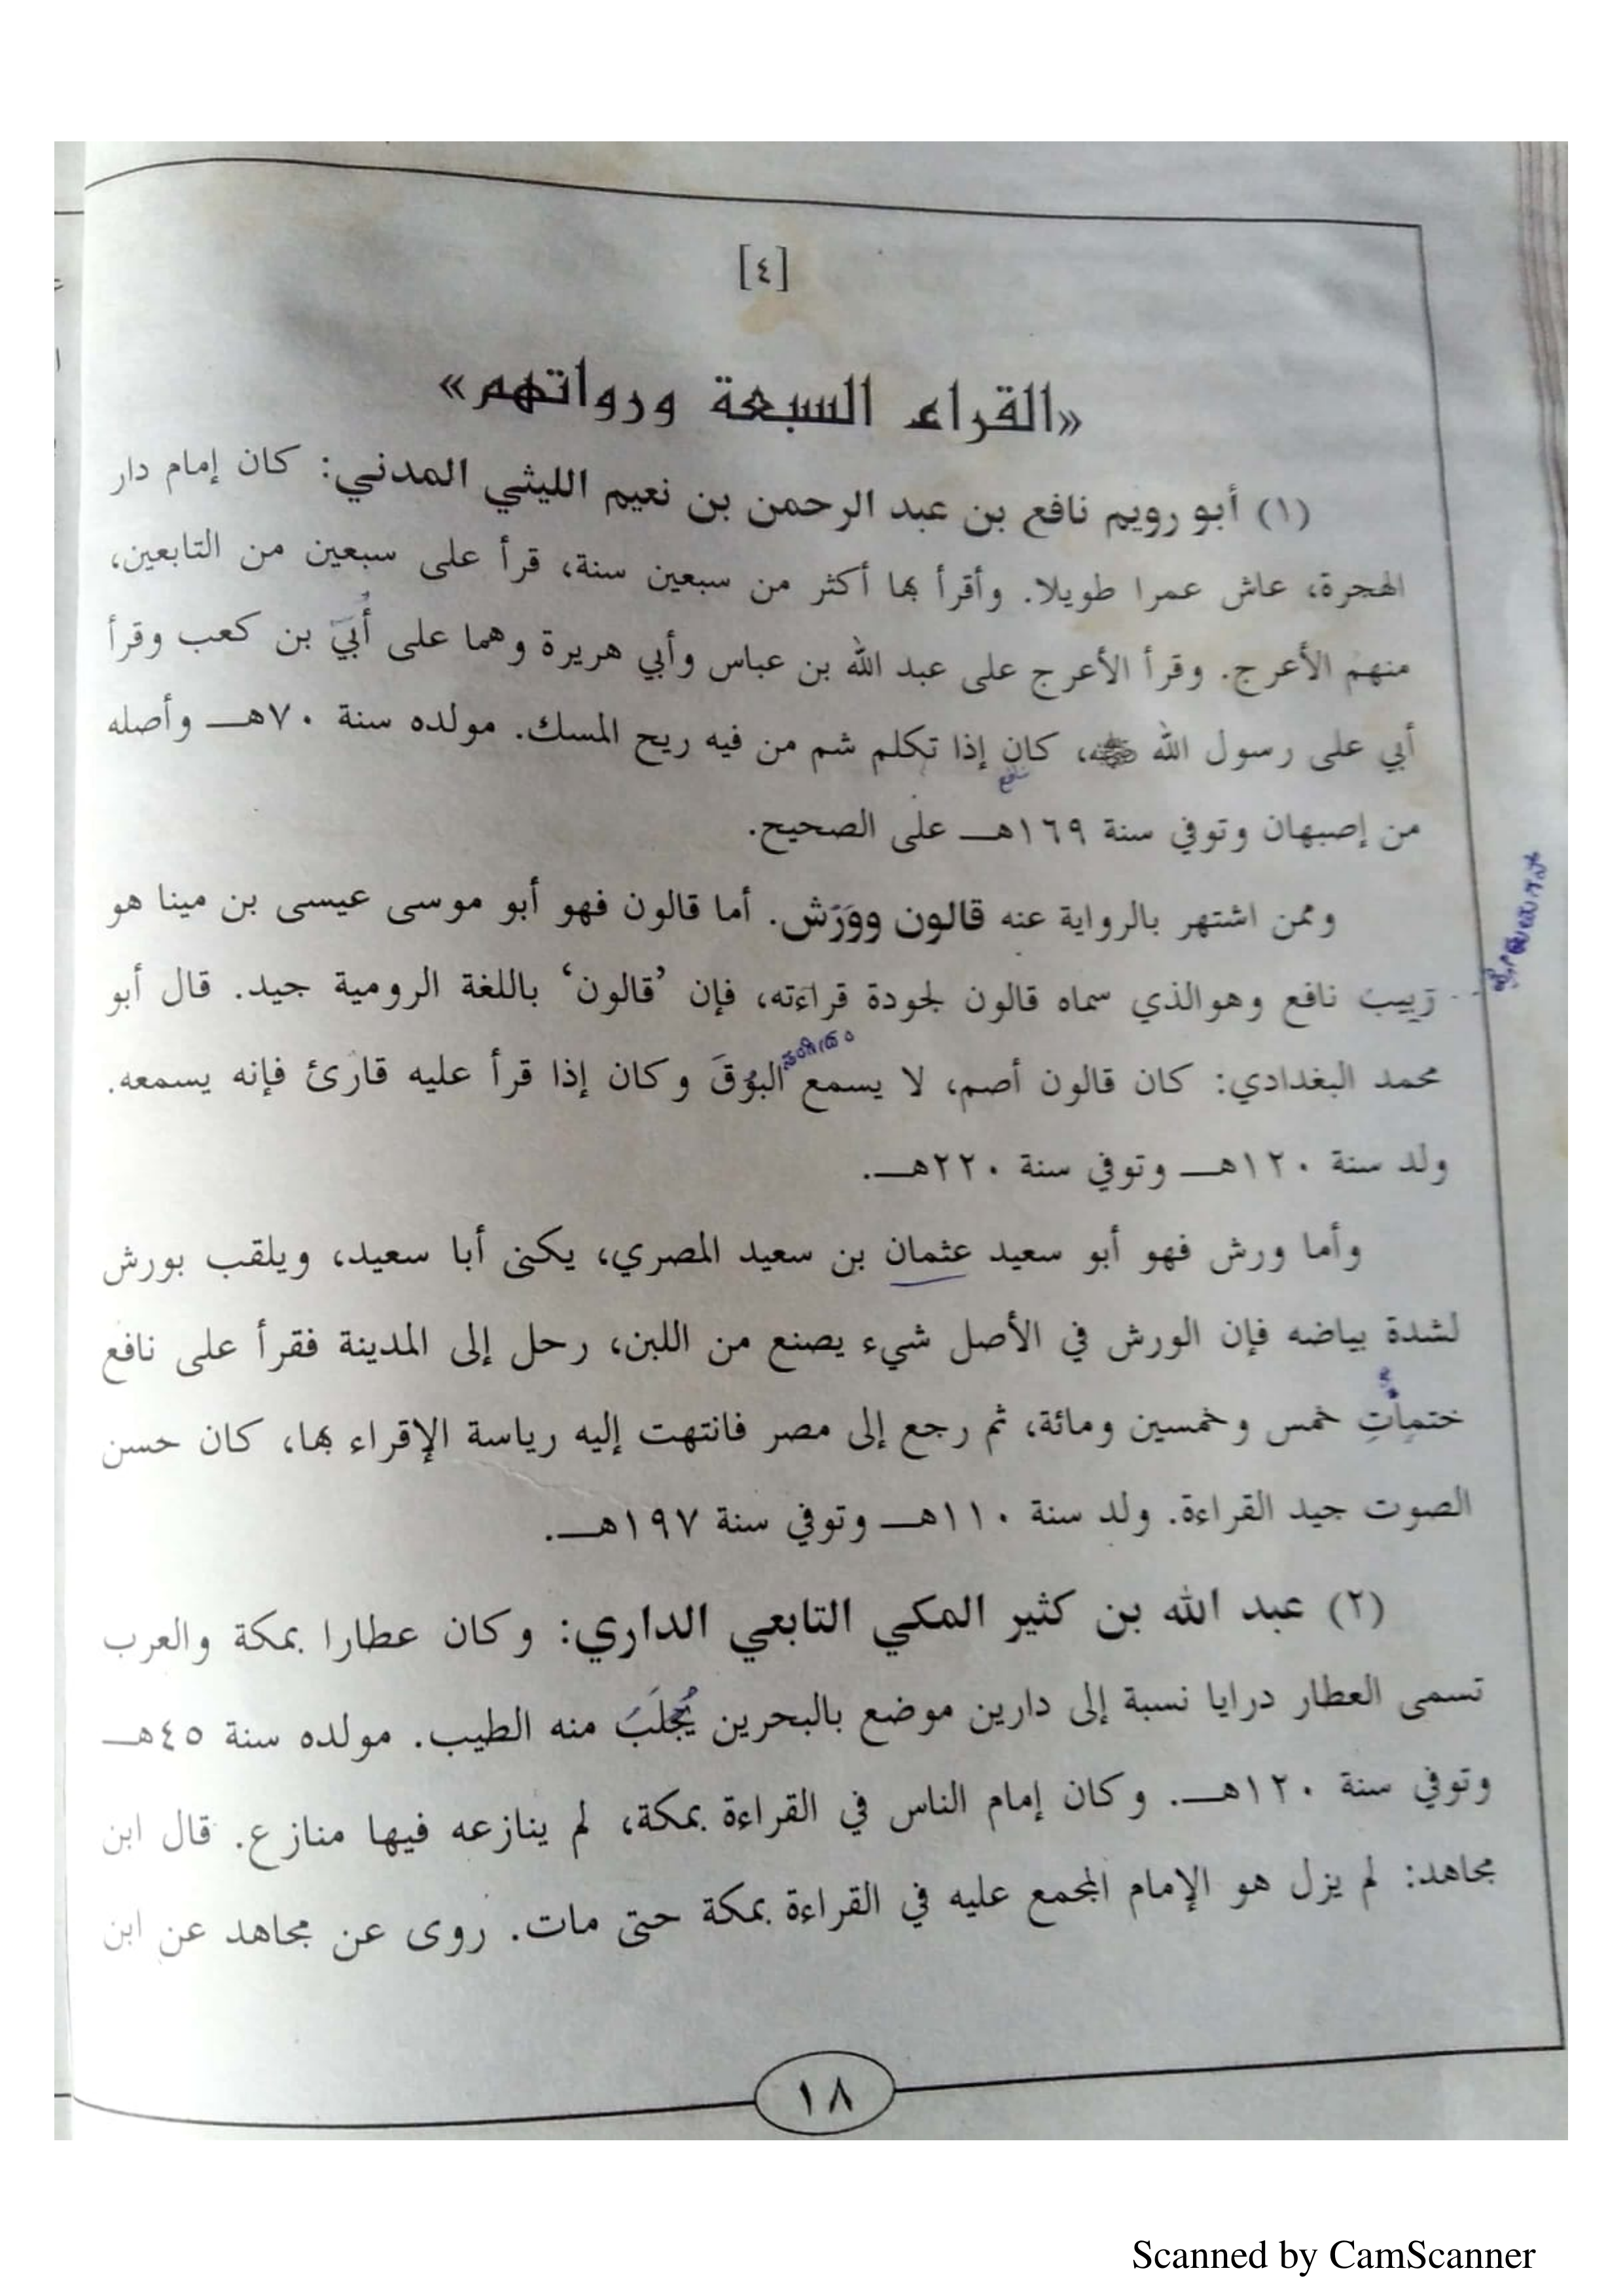 [٤]
«القراء السبعة ورواتهم»
(١) أبو رويم نافع بن عبد الرحمن بن نعيم الليثي المدني: كان إمام دار
الهجرة، عاش عمرا طويلا. وأقرأ بها أكثر من سبعين سنة، قرأ على سبعين من التابعين،
منهم الأعرج. وقرأ الأعرج على عبد الله بن عباس وأبي هريرة وهما على أُبَيّ بن كعب وقرأ
أبي على رسول الله ﷺ، كان إذا تكلم شم من فيه ريح المسك. مولده سنة ٧٠هـ وأصله
نافع
من إصبهان وتوفي سنة ١٦٩هـ على الصحيح.
وممن اشتهر بالرواية عنه قالون ووَرَش. أما قالون فهو أبو موسى عيسى بن مينا هو
رَبِيب نافع وهوالذي سماه قالون لجودة قراءته، فإن ’قالون‘ باللغة الرومية جيد. قال أبو
محمد البغدادي: كان قالون أصم، لا يسمع البُوْقَ وكان إذا قرأ عليه قارئ فإنه يسمعه.
ولد سنة ١٢٠هـ وتوفي سنة ٢٢٠هـ.
وأما ورش فهو أبو سعيد عثمان بن سعيد المصري، يكنى أبا سعيد، ويلقب بورش
لشدة بياضه فإن الورش في الأصل شيء يصنع من اللبن، رحل إلى المدينة فقرأ على نافع
ختماتِ خمس وخمسين ومائة، ثم رجع إلى مصر فانتهت إليه رياسة الإقراء بها، كان حسن
الصوت جيد القراءة. ولد سنة ١١٠هـ وتوفي سنة ١٩٧هـ.
(٢) عبد الله بن كثير المكي التابعي الداري: وكان عطارا بمكة والعرب
تسمى العطار درايا نسبة إلى دارين موضع بالبحرين يُجْلَبُ منه الطيب. مولده سنة ٤٥هـ
وتوفي سنة ١٢٠هـ. وكان إمام الناس في القراءة بمكة، لم ينازعه فيها منازع. قال ابن
مجاهد: لم يزل هو الإمام المجمع عليه في القراءة بمكة حتى مات. روى عن مجاهد عن ابن
١٨
Scanned by CamScanner